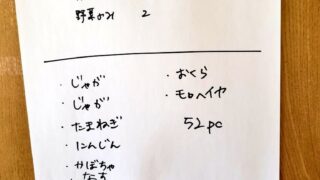 野菜のみ 2
・じゃが
・じゃが
・たまねぎ
・にんじん
・かぼちゃ
なす
・おくら
・モロヘイヤ
52pc